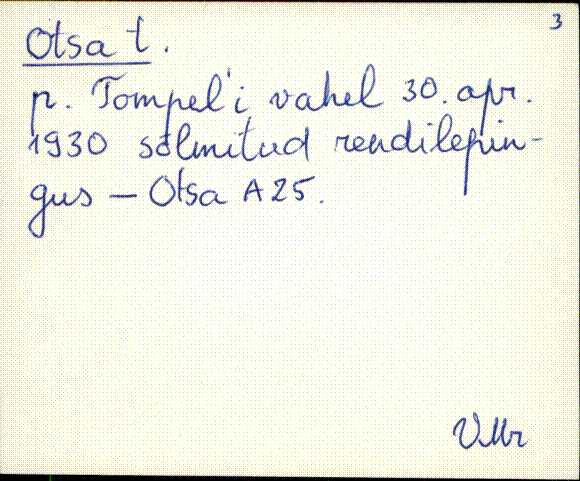 3
Otsa t.
p. Tompel'i vahel 30. apr.
1930 sõlmitud rendilepin-
gus — Otsa A 25.
VMr